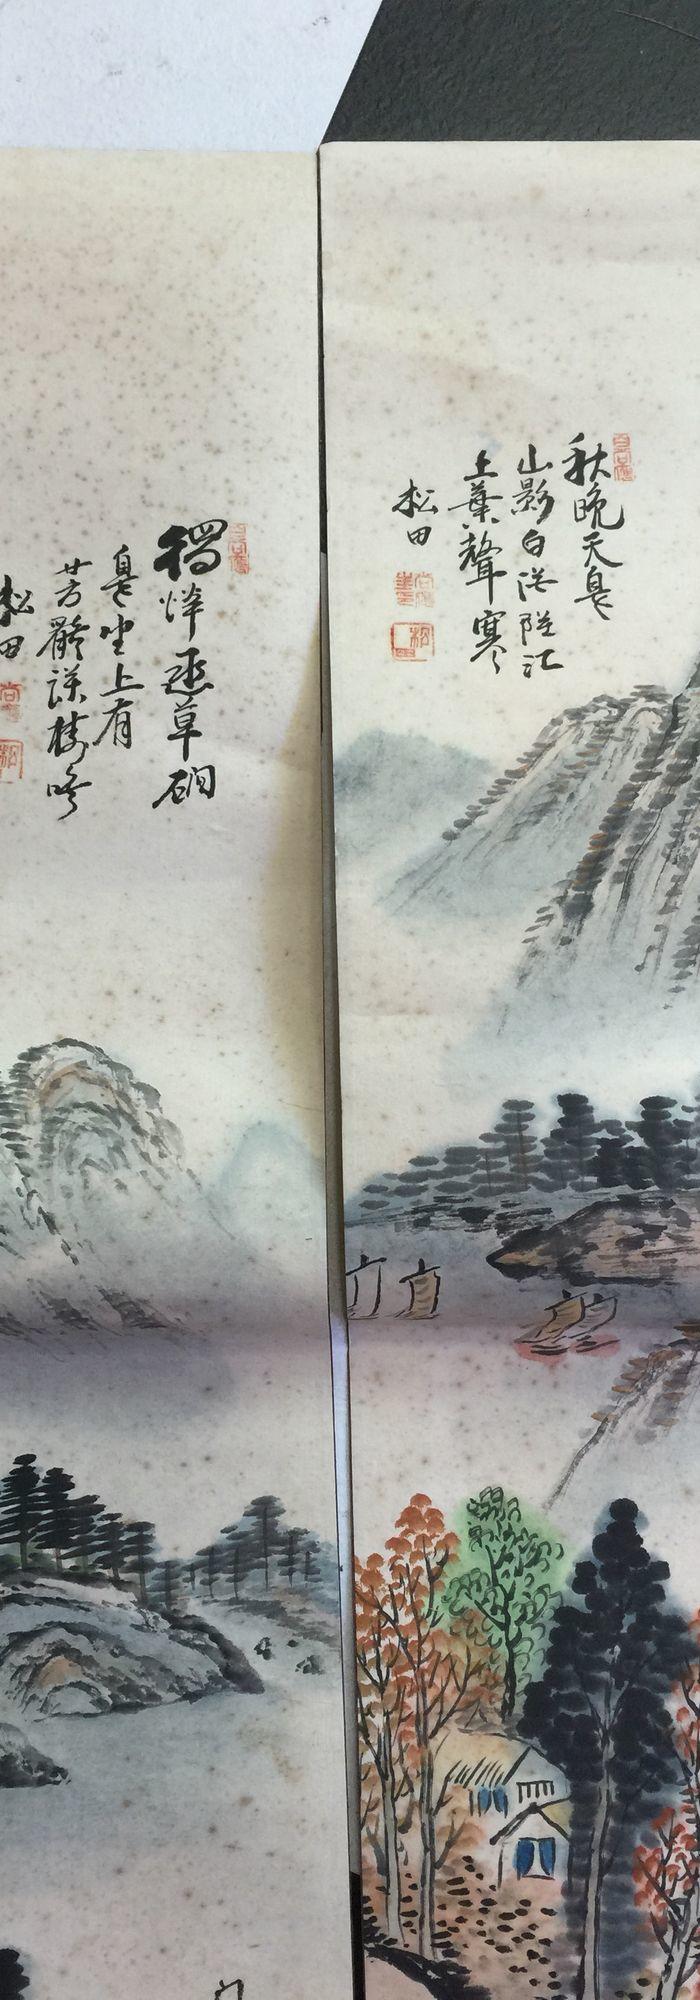 秋晚天邊
山影白江
上葉聲寒
松田
獨憐幽草澗
邊生上有
黃鸝深樹鳴
松田